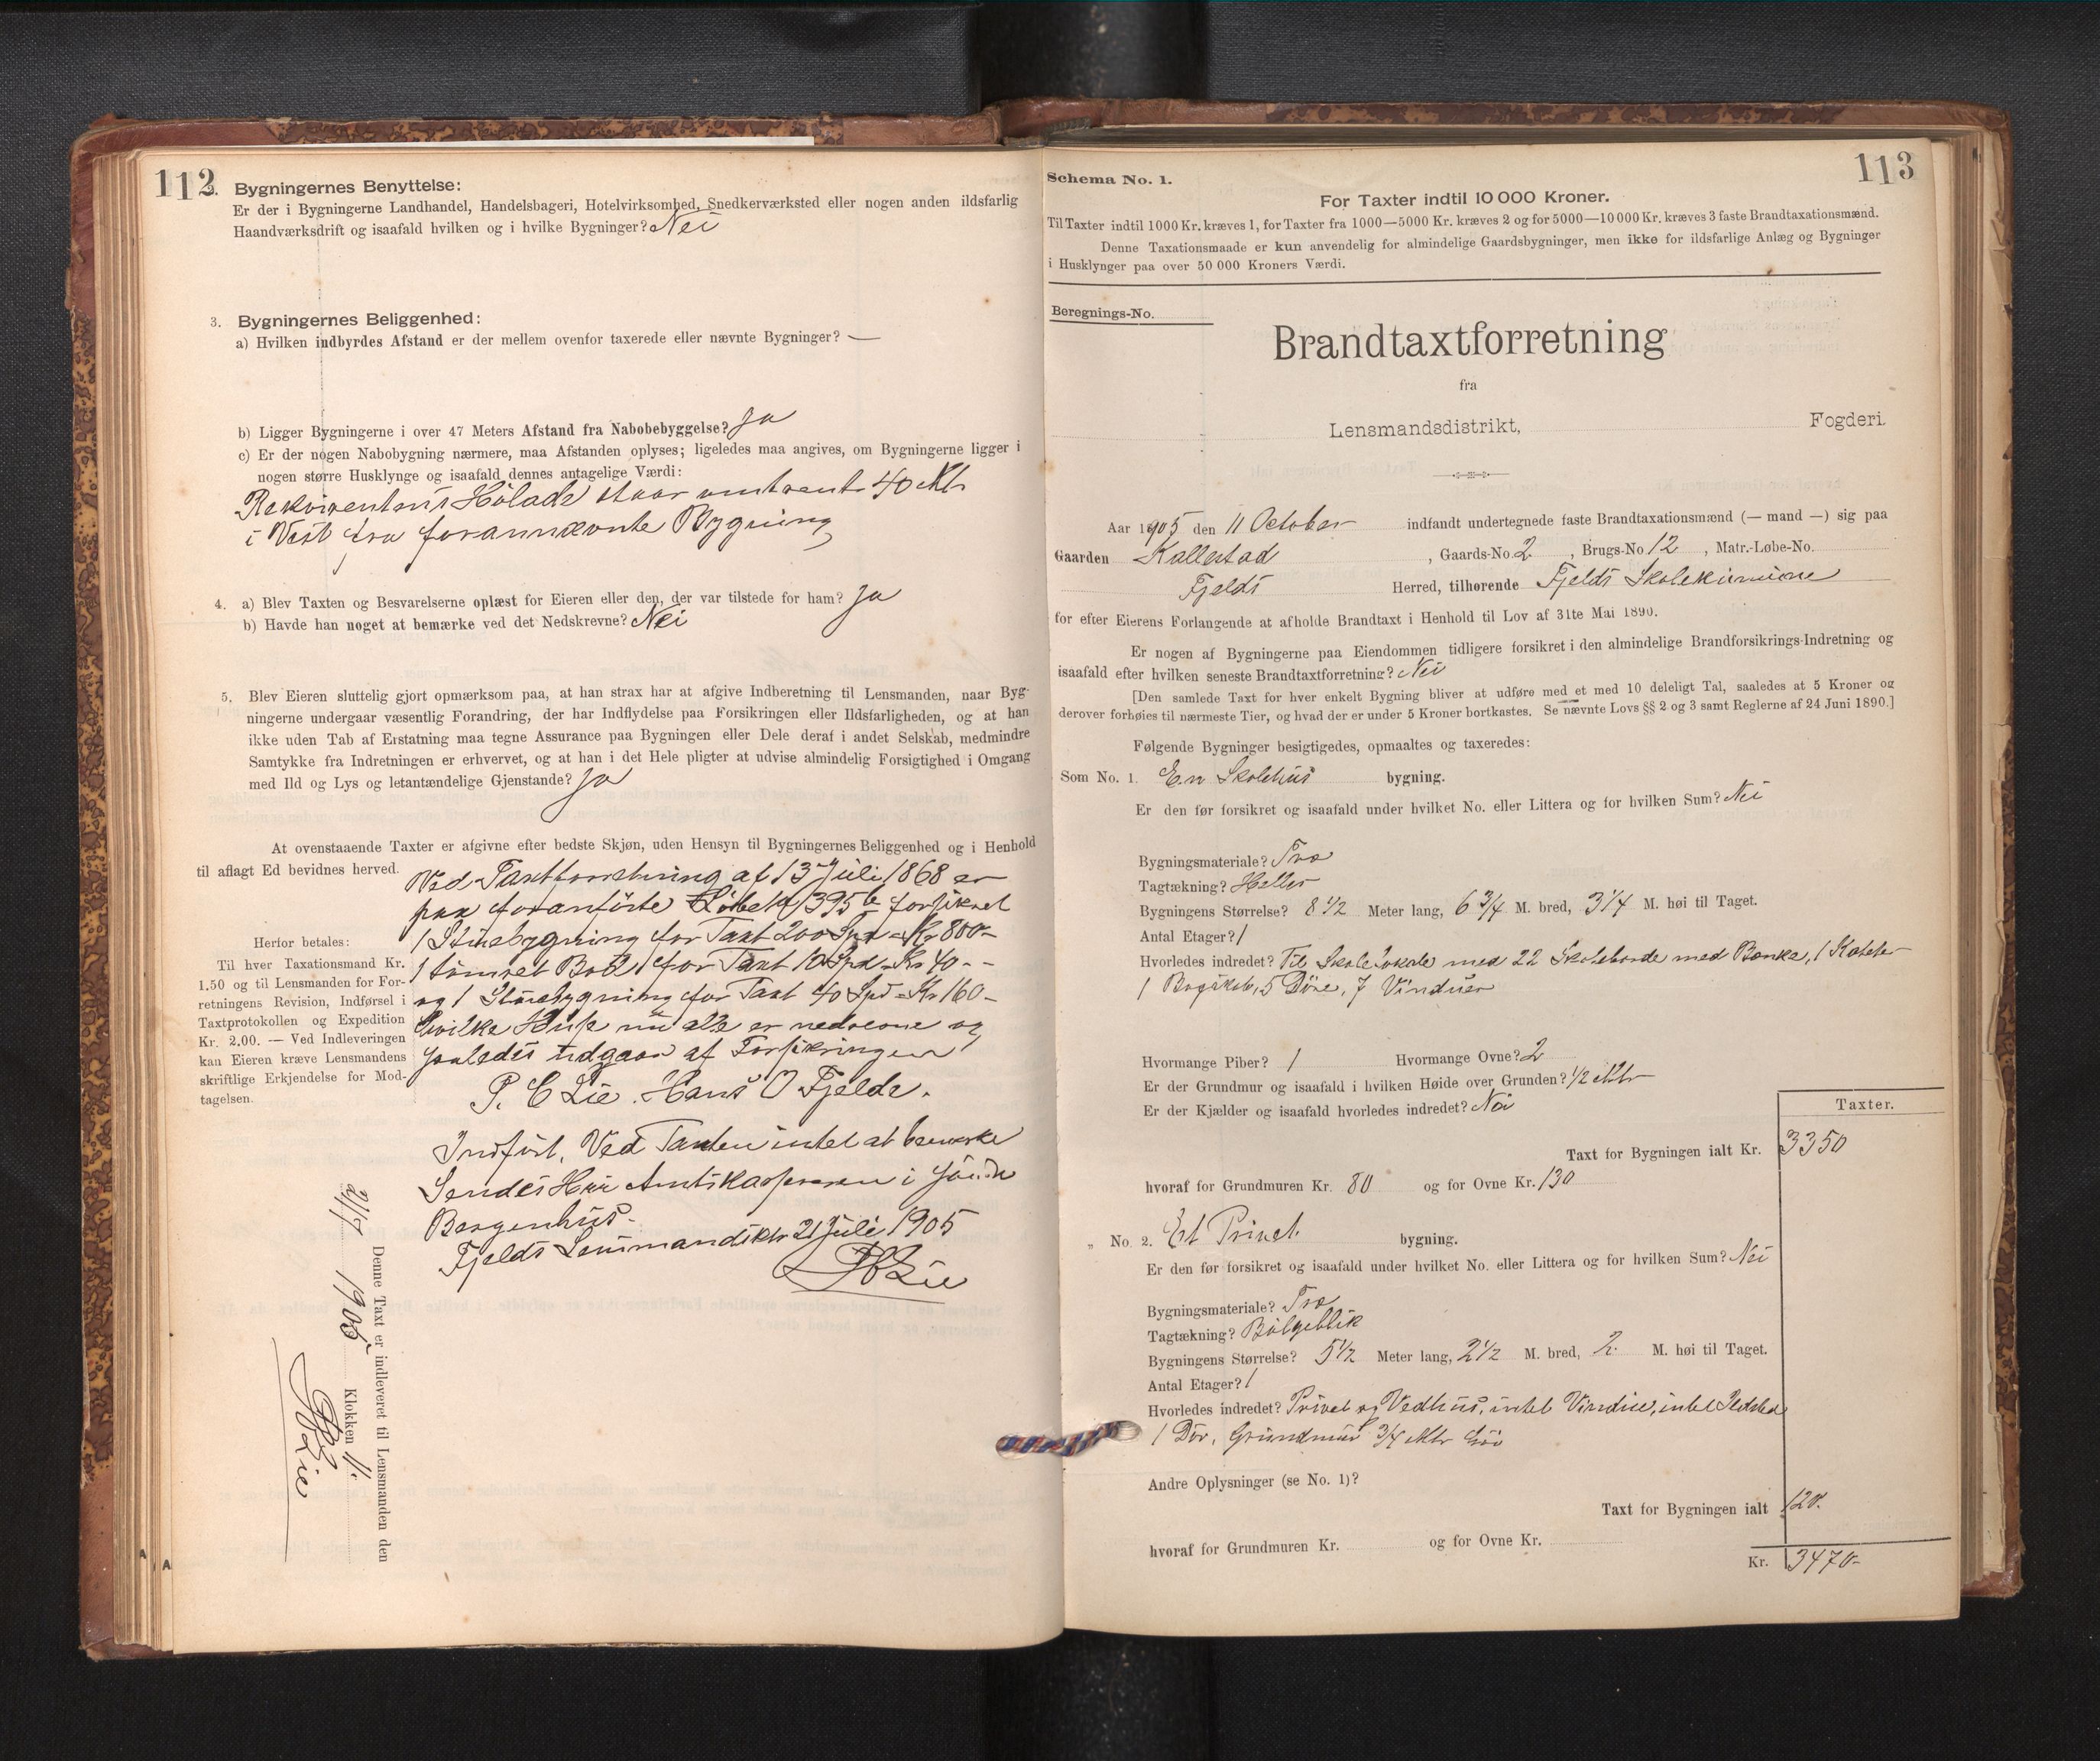 112
2. Bygningernes Benyttelse:
Er der i Bygningerne Landhandel, Handelsbageri, Hotelvirksomhed, Snedkerværksted eller nogen anden ildsfarlig
Haandværksdrift og isaafald hvilken og i hvilke Bygninger? Nei
3. Bygningernes Beliggenhed:
a) Hvilken indbyrdes Afstand er der mellem ovenfor taxerede eller nævnte Bygninger? —
b) Ligger Bygningerne i over 47 Meters Afstand fra Nabobebyggelse? Ja
c) Er der nogen Nabobygning nærmere, maa Afstanden oplyses; ligeledes maa angives, om Bygningerne ligger i
nogen større Husklynge og isaafald dennes antagelige Værdi:
Rekvirentens Hölade staar omtrent 40 Mtr
i Vest fra forannævnte Bygning
4. a) Blev Taxten og Besvarelserne oplæst for Eieren eller den, der var tilstede for ham? Ja
b) Havde han noget at bemærke ved det Nedskrevne? Nei
5. Blev Eieren sluttelig gjort opmærksom paa, at han strax har at afgive Indberetning til Lensmanden, naar Byg-
ningerne undergaar væsentlig Forandring, der har Indflydelse paa Forsikringen eller Ildsfarligheden, og at han
ikke uden Tab af Erstatning maa tegne Assurance paa Bygningen eller Dele deraf i andet Selskab, medmindre
Samtykke fra Indretningen er erhvervet, og at han i det Hele pligter at udvise almindelig Forsigtighed i Omgang
med Ild og Lys og letantændelige Gjenstande? Ja
At ovenstaaende Taxter er afgivne efter bedste Skjøn, uden Hensyn til Bygningernes Beliggenhed og i Henhold
til aflagt Ed bevidnes herved.
Ved Taxtforretning af 13 Juli 1868 er
paa foranförte Löbeno 395 b forsikret
1 Stuebygning for Taxt 200 Spd = Kr 800 -
1 tömret Bod for Taxt 10 Spd = Kr 40 - -
og 1 Stuebygning for Taxt 40 Spd = Kr 160 -
hvilke Huse nu alle er nedrevne og
saaledes udgaar af Forsikringen
P. C Lie. Hans O Fjelde.
Herfor betales:
Til hver Taxationsmand Kr.
1.50 og til Lensmanden for For-
retningens Revision, Indførsel i
Taxtprotokollen og Expedition
Kr. 2.00. — Ved Indleveringen
kan Eieren kræve Lensmandens
skriftlige Erkjendelse for Mod-
tagelsen.
Indfört. Ved Taxten intet at bemærke
Sendes Hrr Amtskassereren i Söndre
Bergenhus.
Fjelds Lensmandsktr 21 Juli 1905
Lie
Denne Taxt er indleveret til Lensmanden den
21/7 1905 Klokken 11.
Lie
A A
113
Schema No. 1.
For Taxter indtil 10 000 Kroner.
Til Taxter indtil 1000 Kr. kræves 1, for Taxter fra 1000—5000 Kr. kræves 2 og for 5000—10 000 Kr. kræves 3 faste Brandtaxationsmænd.
Denne Taxationsmaade er kun anvendelig for almindelige Gaardsbygninger, men ikke for ildsfarlige Anlæg og Bygninger
i Husklynger paa over 50 000 Kroners Værdi.
Beregnings-No.
Brandtaxtforretning
fra
Lensmandsdistrikt, Fogderi.
Aar 1905 den 11 October indfandt undertegnede faste Brandtaxationsmænd (— mand —) sig paa
Gaarden Kallestad, Gaards-No. 2, Brugs-No. 12, Matr.-Løbe-No.
Fjelds Herred, tilhørende Fjelds Skolekomune
for efter Eierens Forlangende at afholde Brandtaxt i Henhold til Lov af 31te Mai 1890.
Er nogen af Bygningerne paa Eiendommen tidligere forsikret i den almindelige Brandforsikrings-Indretning og
isaafald efter hvilken seneste Brandtaxtforretning? Nei
[Den samlede Taxt for hver enkelt Bygning bliver at udføre med et med 10 deleligt Tal, saaledes at 5 Kroner og
derover forhøies til nærmeste Tier, og hvad der er under 5 Kroner bortkastes. Se nævnte Lovs §§ 2 og 3 samt Reglerne af 24 Juni 1890.]
Følgende Bygninger besigtigedes, opmaaltes og taxeredes:
Som No. 1. En Skolehus bygning.
Er den før forsikret og isaafald under hvilket No. eller Littera og for hvilken Sum? Nei
Bygningsmateriale? Træ
Tagtækning? Heller
Bygningens Størrelse? 8 1/2 Meter lang, 6 3/4 M. bred, 3 1/4 M. høi til Taget.
Antal Etager? 1
Hvorledes indredet? Til Skolelokale med 22 Skoleborde med Bænke, 1 Kateter
1 Bogskab, 5 Döre, 7 Vinduer
Hvormange Piber? 1 Hvormange Ovne? 2
Er der Grundmur og isaafald i hvilken Høide over Grunden? 1/2 Mtr
Er der Kjælder og isaafald hvorledes indredet? Nei
Taxter.
Taxt for Bygningen ialt Kr. 3350
hvoraf for Grundmuren Kr. 80 og for Ovne Kr. 130
„ No. 2. Et Privet bygning.
Er den før forsikret og isaafald under hvilket No. eller Littera og for hvilken Sum? Nei
Bygningsmateriale? Træ
Tagtækning? Bölgeblik
Bygningens Størrelse? 5 1/2 Meter lang, 2 1/2 M. bred, 2 M. høi til Taget.
Antal Etager? 1
Hvorledes indredet? Privet og Vedhus, intet Vindue, intet Ildsted
1 Dör, Grundmur 3/4 Mtr höi
Andre Oplysninger (se No. 1)?
Taxt for Bygningen ialt 120.
hvoraf for Grundmuren Kr. og for Ovne Kr.
Kr. 3470 -